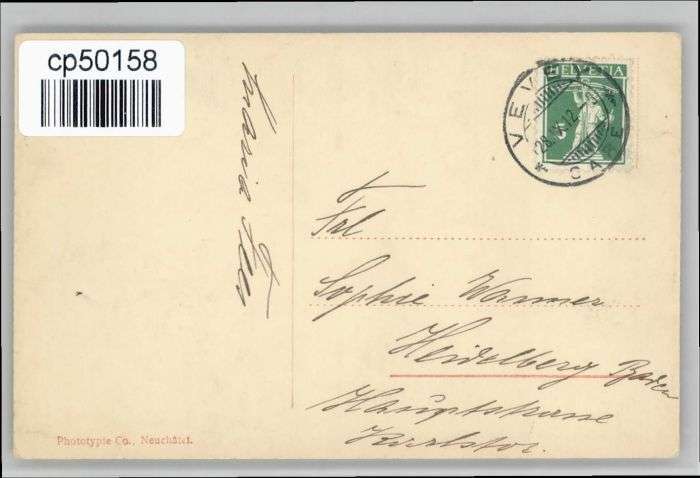 cp50158
HELVETIA
5
VEVEY
28.IX.12.
Frl
Sophie Wanner
Heidelberg Baden
Hauptstrasse
Karlstor.
Phototypie Co., Neuchâtel.